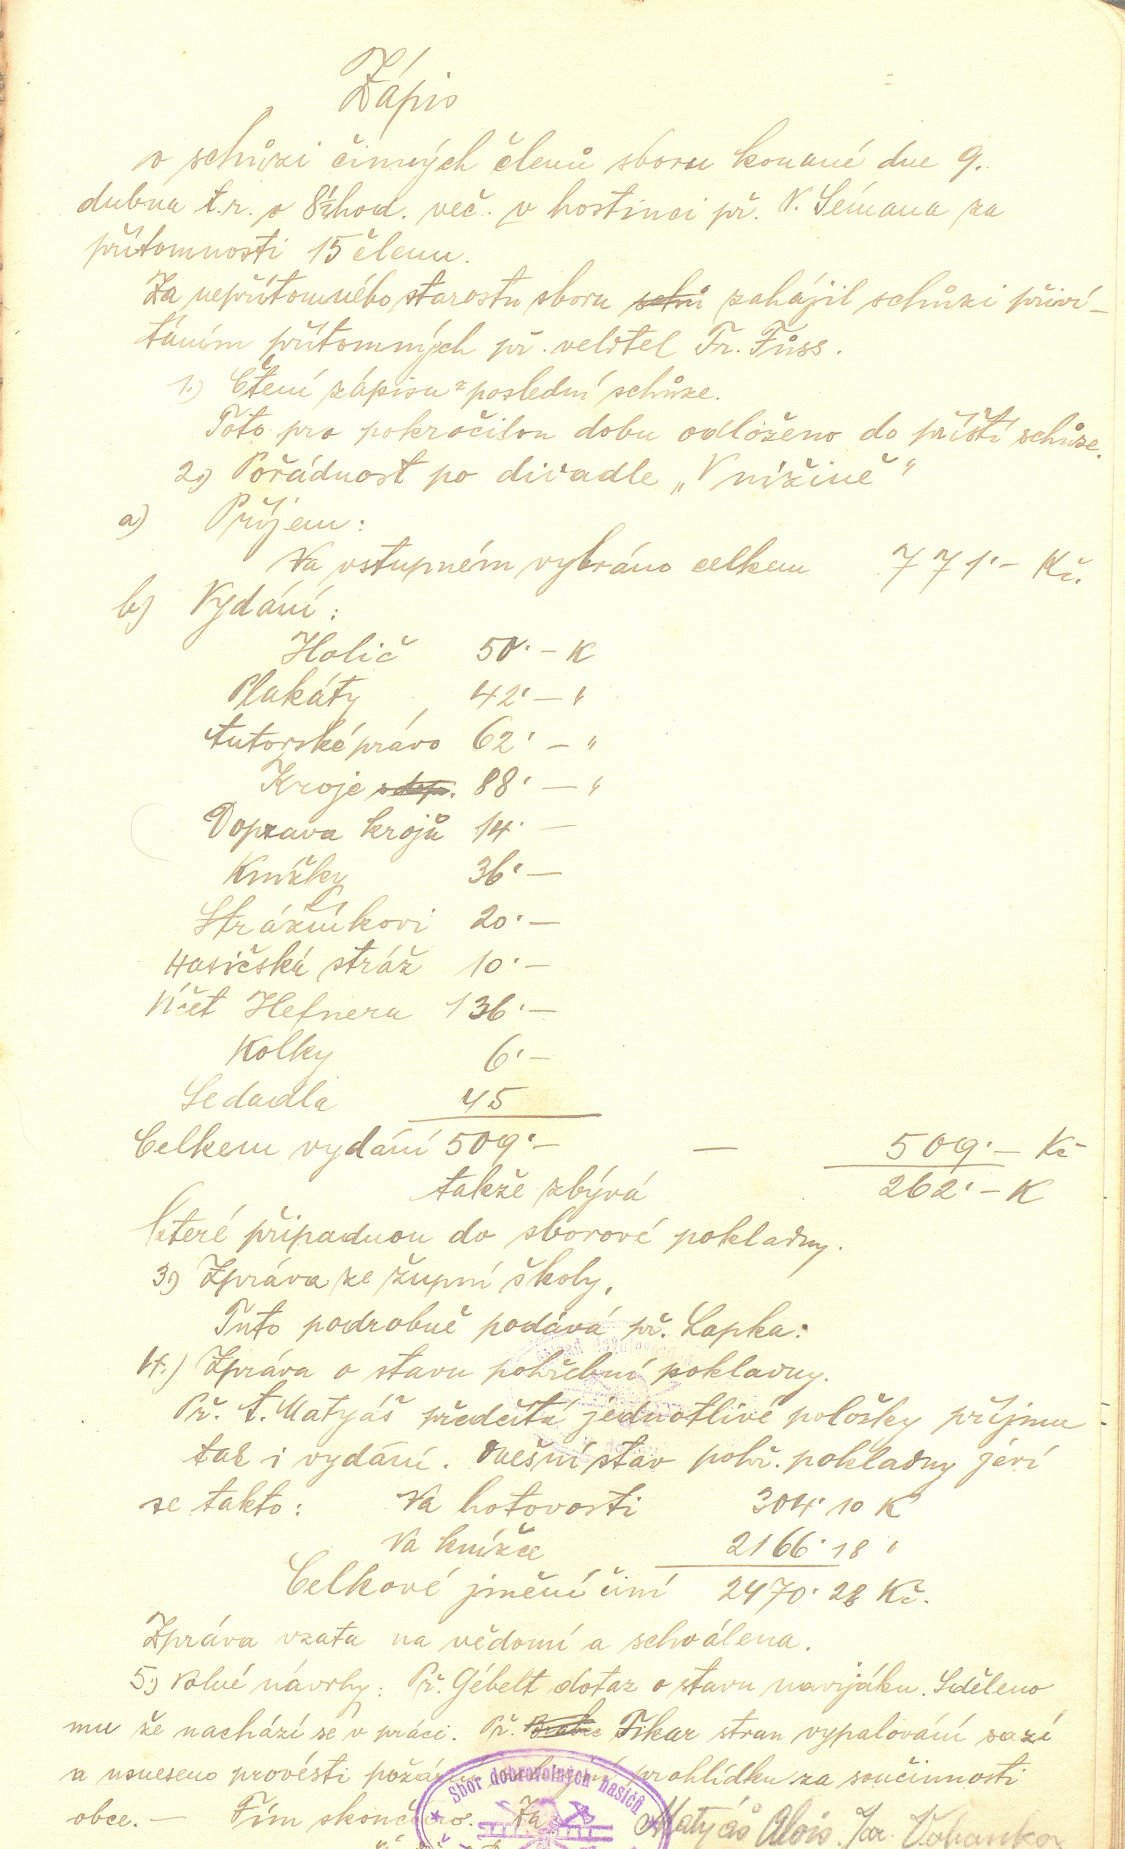 Zápis
o schůzi činných členů sboru konané dne 9.
dubna t.r. o 8½ hod. več. v hostinci př. V. Sémana za
přítomnosti 15 členu.
Za nepřítomného starostu sboru schů zahájil schůzi přiví-
táním přítomných př. velitel Fr. Füss.
1.) Čtení zápisu z poslední schůze.
Toto pro pokročilou dobu odloženo do příští schůze.
2.) Pořádnost po divadle „V nížině"
a) Příjem:
Na vstupném vybráno celkem 771·– Kč.
b) Vydání:
Holič 50·– K
Plakáty 42·– "
Autorské právo 62·– "
Kroje 88·– "
Doprava krojů 14·–
Knížky 36·–
Strážníkovi 20·–
Hasičská stráž 10·–
Účet Hefnera 136·–
Kolky 6·–
Sedadla 45
Celkem vydání 509·– – 509·– Kč
takže zbývá 262·– K
které připadnou do sborové pokladny.
3.) Zpráva ze župní školy.
Tuto podrobně podává př. Lapka:
4.) Zpráva o stavu pohřební pokladny.
Př. A. Matyáš předčítá jednotlivé položky příjmu
tak i vydání. Dnešní stav pohř. pokladny jeví
se takto: Na hotovosti 304·10 K
Na knížce 2166·18 "
Celkové jmění činí 2470·28 Kč.
Zpráva vzata na vědomí a schválena.
5.) Volné návrhy: Př. Gébelt dotaz o stavu navijáku. Sděleno
mu že nachází se v práci. Př. Fikar stran vypalování sazí
a usneseno provésti požární prohlídku za součinnosti
obce. – Tím skončeno. Za
Matyáš Alois. Jar. Vohanka
★ Sbor dobrovolných hasičů ★